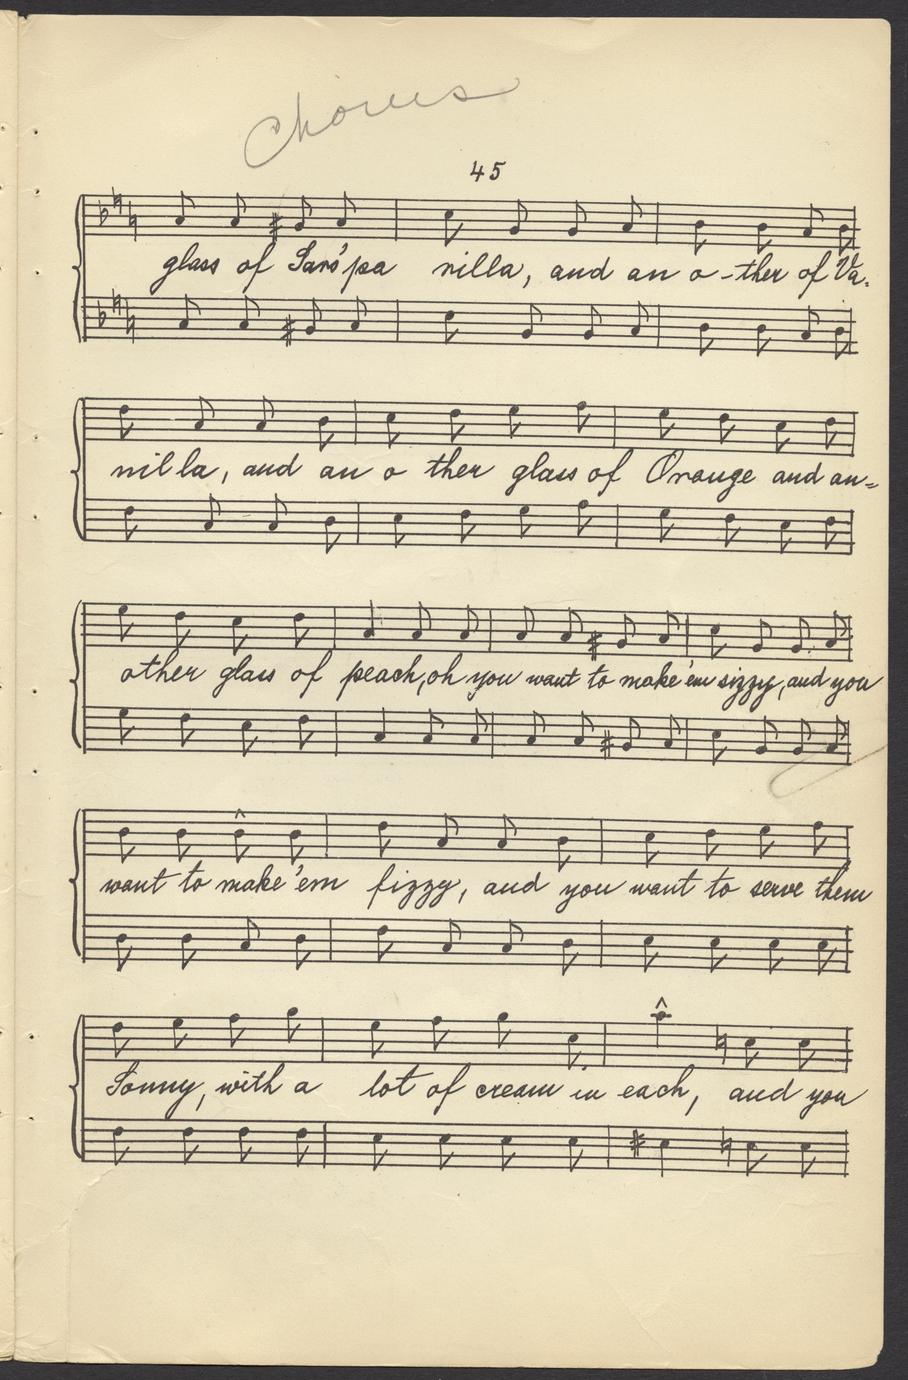 Chorus
45
glass of Sars'pa rilla, and an o-ther of Va-
nil la, and an o ther glass of Orange and an=
other glass of peach, oh you want to make'em sizzy, and you
want to make'em fizzy, and you want to serve them
Sonny, with a lot of cream in each, and you